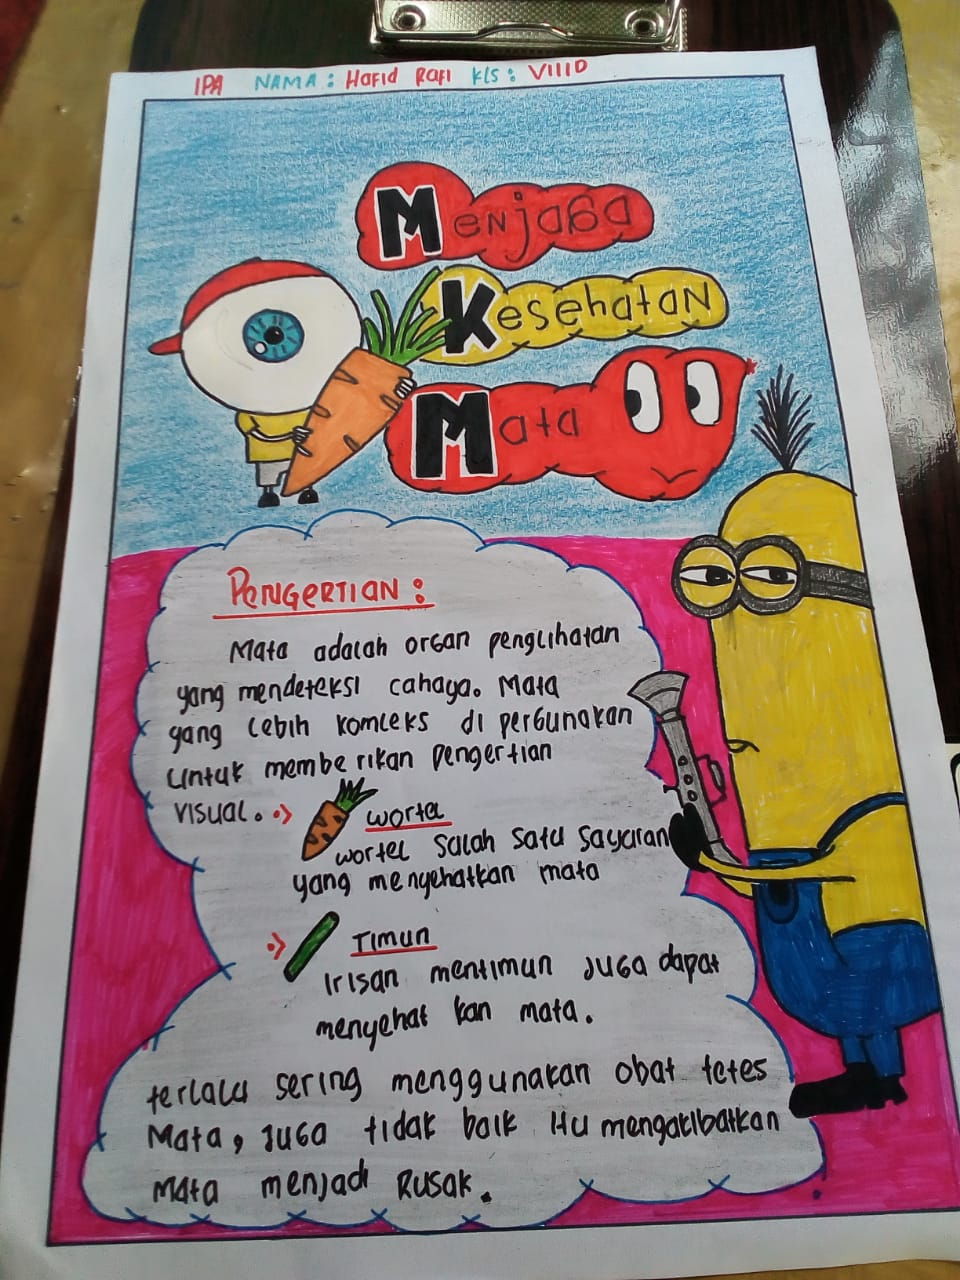 IPA NAMA : Hafid Rafi kls : VIIID
Menjaga
Kesehatan
Mata
PENGERTIAN :
Mata adalah organ penglihatan
yang mendeteksi cahaya. Mata
yang lebih komleks di pergunakan
untuk membe rikan pengertian
visual.
wortel
wortel salah satu sayuran
yang menyehatkan mata
Timun
Irisan mentimun juga dapat
menyehat kan mata.
terlalu sering menggunakan obat tetes
Mata, juga tidak baik itu mengakibatkan
Mata menjadi Rusak.